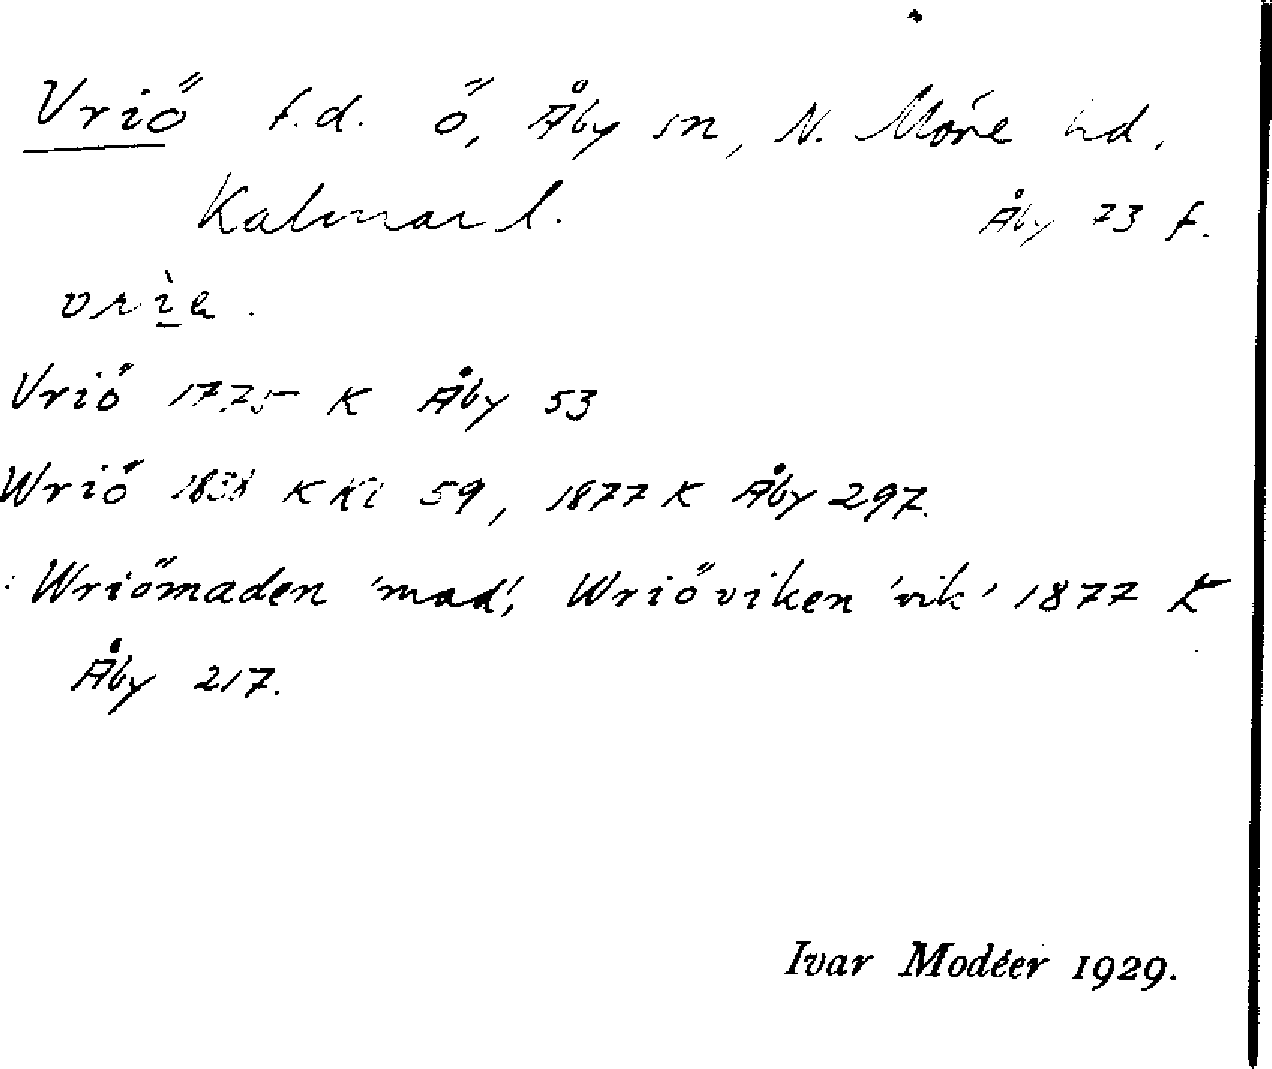 Vriö f.d. ö, Åby sn, N. Möre hd,
Kalmar l. Åby 73 f.
vrìə.
Vriö 1775 K Åby 53
Wriö K Kl 59, 1877 K Åby 297.
: Wriömaden 'mad', Wriöviken 'vik' 1877 K
Åby 217.
Ivar Modéer 1929.